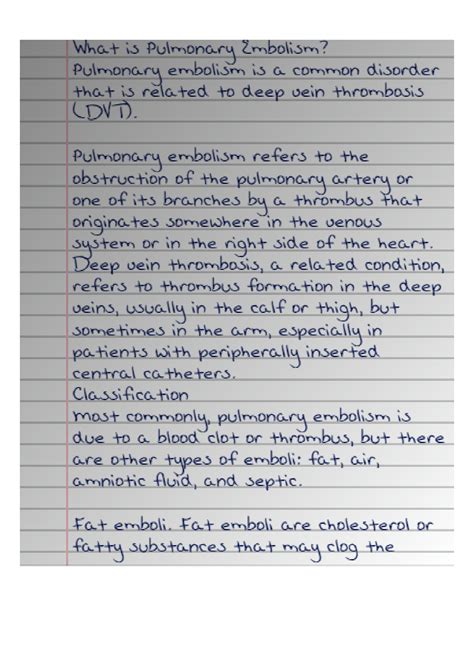 What is Pulmonary Embolism?
Pulmonary embolism is a common disorder
that is related to deep vein thrombosis
(DVT).
Pulmonary embolism refers to the
obstruction of the pulmonary artery or
one of its branches by a thrombus that
originates somewhere in the venous
system or in the right side of the heart.
Deep vein thrombosis, a related condition,
refers to thrombus formation in the deep
veins, usually in the calf or thigh, but
sometimes in the arm, especially in
patients with peripherally inserted
central catheters.
Classification
Most commonly, pulmonary embolism is
due to a blood clot or thrombus, but there
are other types of emboli: fat, air,
amniotic fluid, and septic.
Fat emboli. Fat emboli are cholesterol or
fatty substances that may clog the